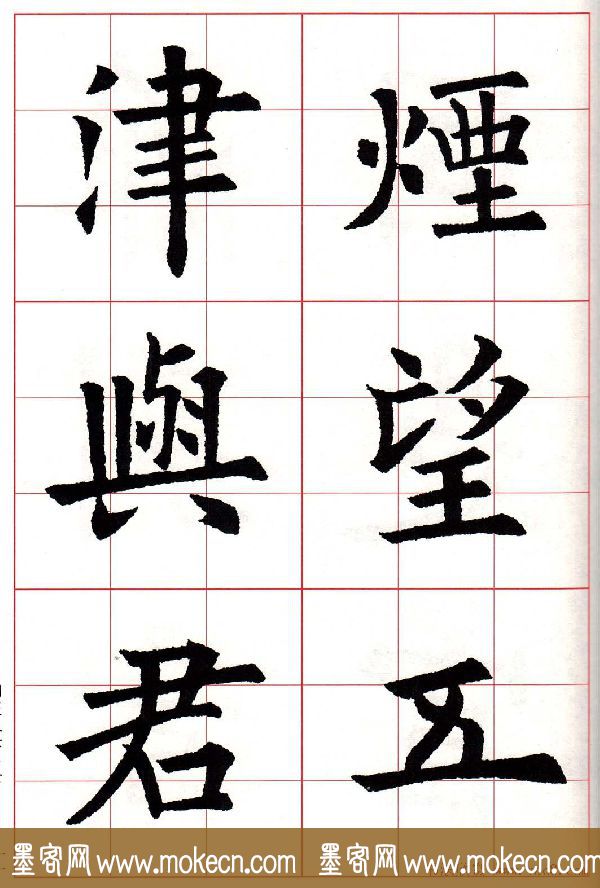 煙望五
津與君
墨客网 www.mokecn.com 墨客网 www.mokecn.com